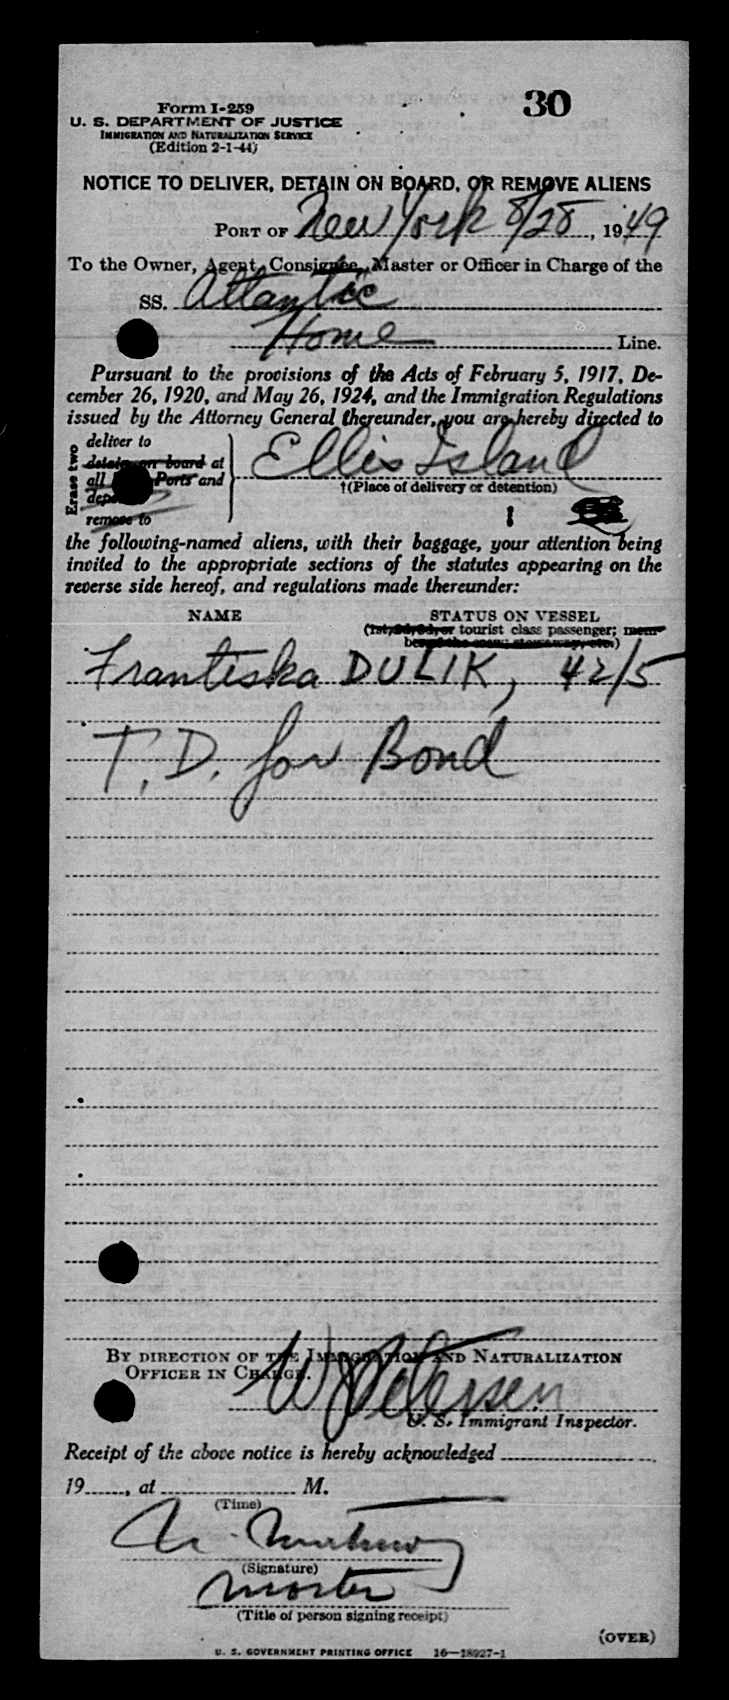 30
Form I-259
U. S. DEPARTMENT OF JUSTICE
IMMIGRATION AND NATURALIZATION SERVICE
(Edition 2-1-44)
NOTICE TO DELIVER, DETAIN ON BOARD, OR REMOVE ALIENS
PORT OF New York 8/28, 1949
To the Owner, Agent, Consignee, Master or Officer in Charge of the
SS. Atlantic
Home Line.
Pursuant to the provisions of the Acts of February 5, 1917, De-
cember 26, 1920, and May 26, 1924, and the Immigration Regulations
issued by the Attorney General thereunder, you are hereby directed to
Erase two
deliver to
detain on board at
all Ports and
remove to
Ellis Island
†(Place of delivery or detention)
the following-named aliens, with their baggage, your attention being
invited to the appropriate sections of the statutes appearing on the
reverse side hereof, and regulations made thereunder:
NAME STATUS ON VESSEL
(1st, 2d, 3d, or tourist class passenger; mem-
ber of the crew; stowaway, etc.)
Frantiska DULIK, 42/5
T.D. for Bond
BY DIRECTION OF THE IMMIGRATION AND NATURALIZATION
OFFICER IN CHARGE.
W Petersen
U. S. Immigrant Inspector.
Receipt of the above notice is hereby acknowledged
19____, at ____ M.
(Time)
(Signature)
Master
(Title of person signing receipt)
(OVER)
U. S. GOVERNMENT PRINTING OFFICE 16—18927-1